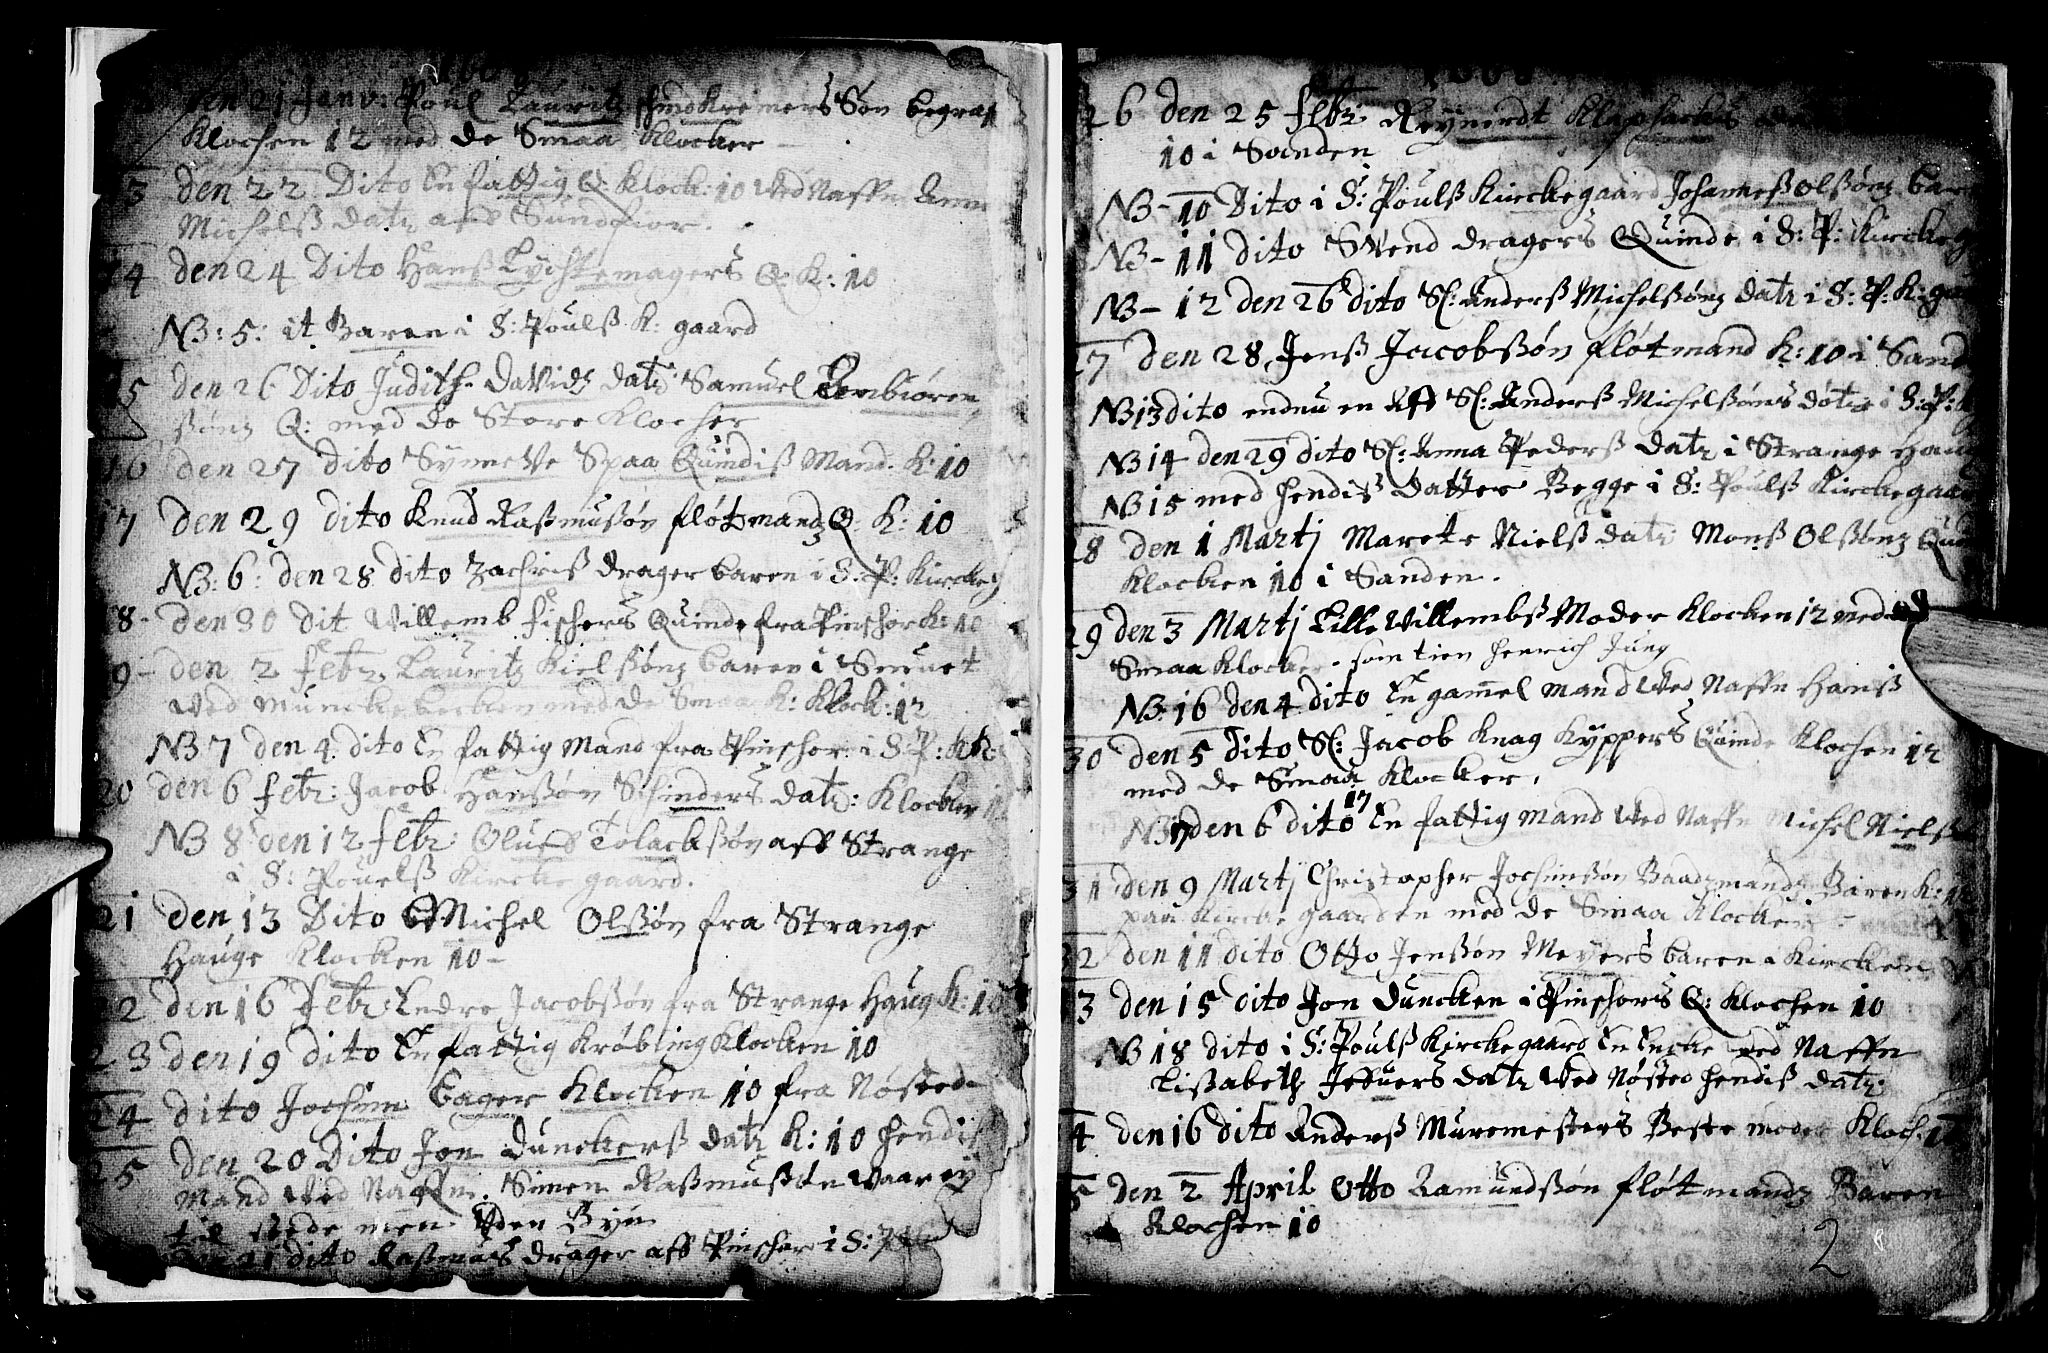 den 21 Janv: Poul Lauritz Søn begraf
Klochen 12 med de Smaa Klocker
13 den 22 Dito En fattig Q: Klock: 10 Ved Naffn Anna
Michelß datr aff Sundfior.
14 den 24 Dito Hanß Lychtemagers Q: K: 10
NB: 5: it Baren i S: Poulß K: gaard
15 den 26 Dito Judith Davidz datr Samuel
ßønz Q: med de Store Klocher
16 den 27 dito Synneve Spaa Quindiß Mand. K: 10
17 den 29 dito Knud Raßmusøn fløtmandz Q: K: 10
NB: 6: den 28 dito Zachriß drager baren i S. P: Kircke
8- den 30 dit Villemb fischers Quinde fra Pinshor K: 10
9- den 2 febr. Lauritz Kielßønz baren i
Ved Munckebecken med de Smaa K: Klock: 12
NB 7 den 4 dito En fattig Mand fra Pinshor i S P: K
20 den 6 febr: Jacob Hanßøn Schinders datr: Klocken
NB 8 den 12 febr: Oluff Tolackßøn aff Strange
i S: Pouelß Kircke gaard.
21 den 13 Dito Michel Olßøn fra Strange
Hauge Klocken 10-
22 den 16 febr: Endre Jacobßøn fra Strange Haug K: 10
23 den 19 dito En fattig Krøbling Klocken 10
24 dito Jochim Bager Klocken 10 fra Nøsted
25 den 20 Dito Jon Dunckerß datr K: 10 hendiß
Mand Ved Naffn. Simen Raßmußøn Vaar ey
til stede men Uden Byn
21 dito Raßmus drager aff Pinshor i S:
26 den 25 febr: Reynerdt
10 i Sanden
NB-10 Dito i S: Poulß Kirckegaard Johanneß Olßønz bar
NB-11 dito Svend dragers Quinde i S: P: Kircke
NB-12 den 26 dito Sl: Anderß Michelßønz datr i S: P: K: ga
27 den 28 Jenß Jacobßøn fløtmand K: 10 i Sand
NB 13 dito endnu en Aff Sl: Anderß Michelßøns døtre i S: P:
NB 14 den 29 dito Sl: Anna Pederß datr i Strange Hau
NB 15 med hendiß datter Begge i S: Poulß Kirckegaar
28 den 1 Martj Marete Nielß datr Monß Olßønz Qu
Klocken 10 i Sanden.
29 den 3 Martj Lille Villembß Moder Klocken 12 med
Smaa Klocker. som tien Henrich Jung
NB 16 den 4 dito En gamel mand Ved Naffn Hanß
30 den 5 dito Sl: Jacob Knag Kyppers Quinde Klochen 12
med de Smaa Klocker.
17
NB 17 den 6 dito En fattig mand Ved Naffn Michel Nielß
31 den 9 Martj Christopher Jochimßøn Baadzmandz Baren K: 12
paa Kircke gaarden med de Smaa Klocker
32 den 11 dito Otto Jenßøn Meyers baren i Kircken
3 den 15 dito Jon Duncken i Pinshors Q: Klochen 10
NB 18 dito i S: Poulß Kirckegaard En Encke ved Naffn
Lißabeth datr Ved Nøsted hendiß datr:
4 den 16 dito Anderß Muremesters Beste moder Kloch: 1
5 den 2 April Otto Ramundßøn fløtmandz Baren
Klochen 10
2